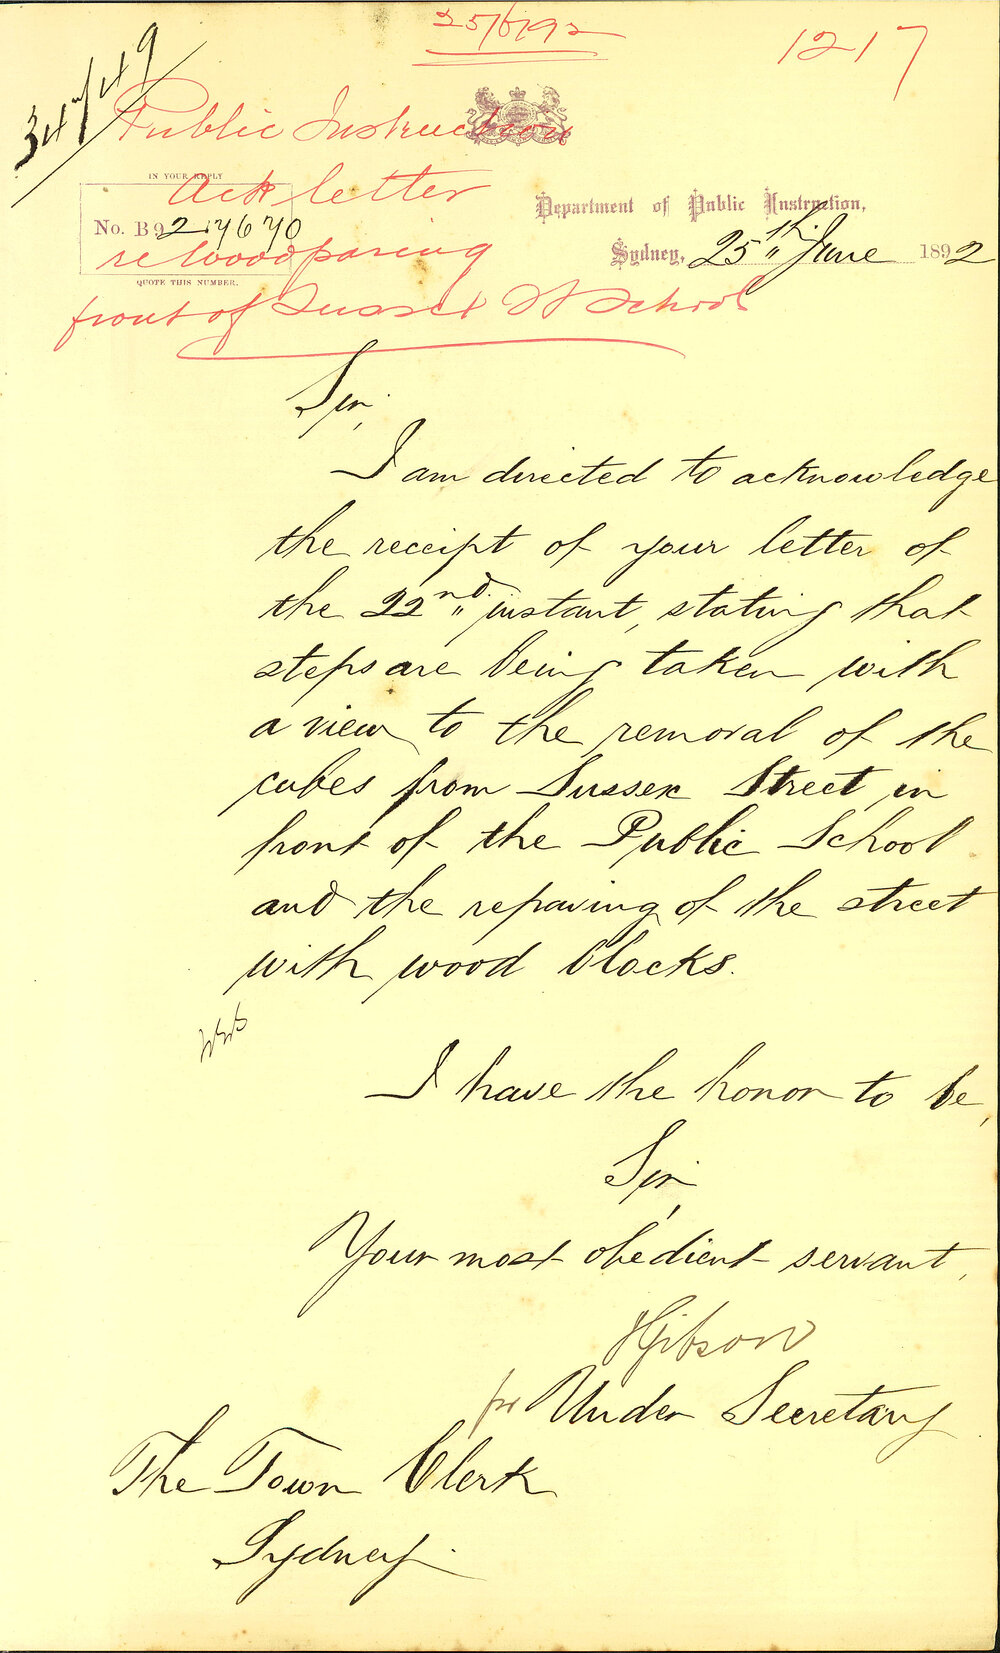 25/6/92
1217
Public Instruction
IN YOUR REPLY
Ack letter
Department of Public Instruction,
No. B92
re Woodpaving
Sydney, 25th June 1892
QUOTE THIS NUMBER.
front of Sussex St School
Sir,
I am directed to acknowledge
the receipt of your letter of
the 22nd instant, stating that
steps are being taken with
a view to the removal of the
cubes from Sussex Street in
front of the Public School
and the repaving of the street
with wood blocks.
I have the honor to be,
Sir,
Your most obedient servant,
Gibson
for Under Secretary
The Town Clerk
Sydney.